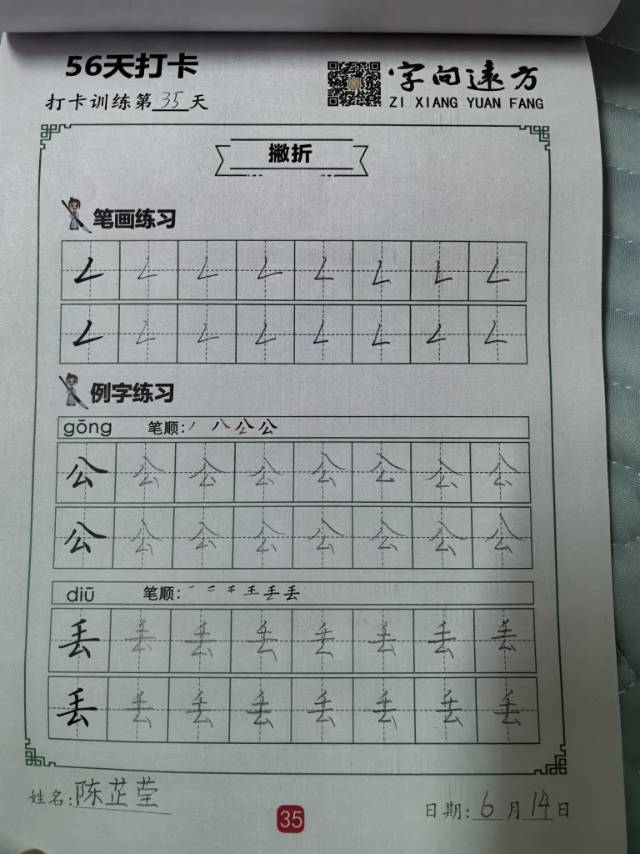 56天打卡
打卡训练第35天
字向遠方
ZI XIANG YUAN FANG
撇折
笔画练习
𠃋 𠃋 𠃋 𠃋 𠃋 𠃋 𠃋 𠃋
𠃋 𠃋 𠃋 𠃋 𠃋 𠃋 𠃋 𠃋
例字练习
gōng 笔顺: 丿 八 公 公
公 公 公 公 公 公 公 公
公 公 公 公 公 公 公 公
diū 笔顺: 一 二 千 王 丢 丢
丢 丢 丢 丢 丢 丢 丢 丢
丢 丢 丢 丢 丢 丢 丢 丢
姓名:陈芷莹
35
日期:6月14日